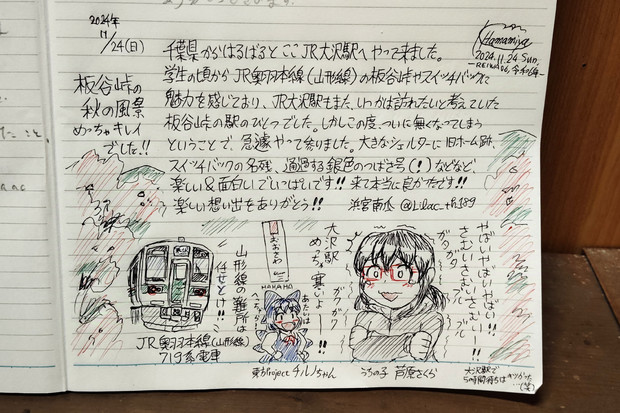 2024年
11/24(日)
板谷峠の
秋の風景
めっちゃキレイ
でした!!
千葉県からはるばるとここJR大沢駅へやって来ました。
学生の頃からJR奥羽本線(山形線)の板谷峠やスイッチバックに
魅力を感じており、JR大沢駅もまた、いつかは訪れたいと考えていた
板谷峠の駅のひとつでした。しかしこの度、ついに無くなってしまう
ということで、急遽やって参りました。大きなシェルターに旧ホーム跡、
スイッチバックの名残、通過する銀色のつばさ号(!)などなど、
楽しい&面白いでいっぱいです!!来て本当に良かったです!!
楽しい想い出をありがとう!!
浜宮南丞 @Lilac_th189
Hamamiya
2024.11.24.Sun.
山形線の難所は
任せとけ!!
JR奥羽本線(山形線)
719系電車
おおさわ
HAHAHA
大沢駅
めっちゃ寒いよ!!
ガクガク
東方Project チルノちゃん
やばいやばいやばい!!
さむいさむいさむいーー!!
ガタガタ
ブルブル
うちの子 芦原さくら
大沢駅で
5時間待ちは
ヤバかった
…(笑)